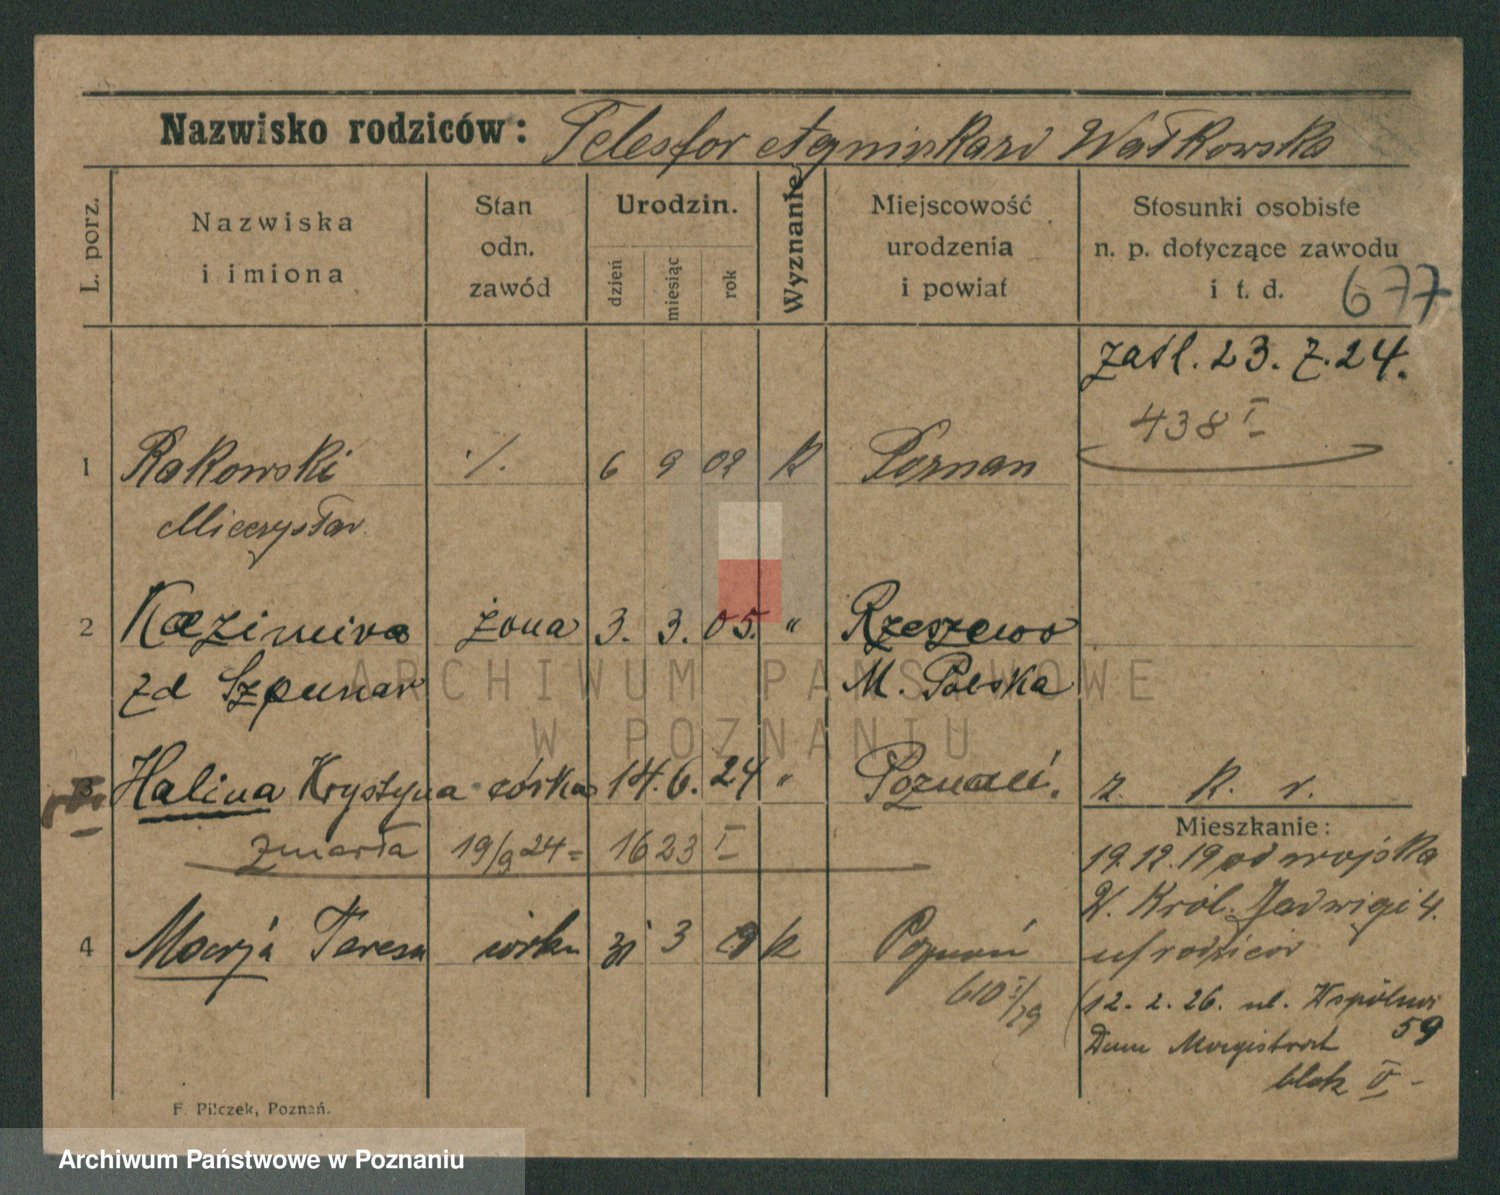 Nazwisko rodziców: Telesfor Wałkowska
L. porz.
Nazwiska
i imiona
Stan
odn.
zawód
Urodzin.
dzień
miesiąc
rok
Wyznanie
Miejscowość
urodzenia
i powiat
Stosunki osobiste
n. p. dotyczące zawodu
i t. d.
677
zaśl. 23. 7. 24.
438 I
1 Rakowski ·/. 6 9 02 k Poznan
Mieczysław
2 Kazimira żona 3. 3. 05. " Rzeszewo
zd Szpunar M. Polska
3 Halina Krystyna córka 14. 6. 24 " Poznań. r. k. r.
zmarła 19/9 24 = 1623 I
Mieszkanie:
19.12.19 od wojska
W. Król. Jadwigi 4.
u/rodzicór
4 Marja Teresa córka 31 3 29 k Poznań
610 I/29
(12. 2. 26. ul. Wspólna
59
Dom Magistrat
blok II -
F. Pilczek, Poznań.
ARCHIWUM PAŃSTWOWE
W POZNANIU
Archiwum Państwowe w Poznaniu